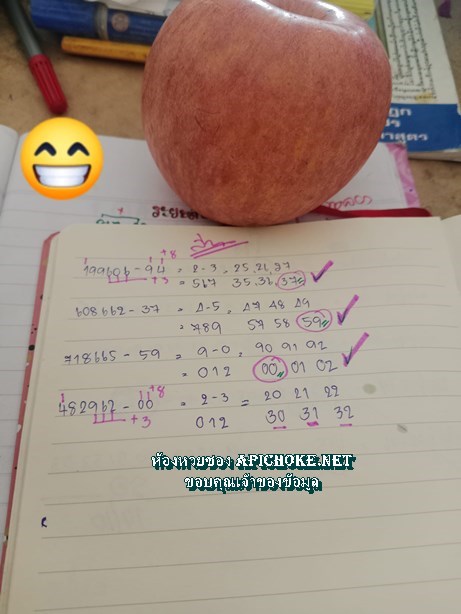 ฏิก
าสตร
199606-94 = 2-3, 25,26,27
+8
+3
= 567 35,36,37
608662-37 = 4-5, 47 48 49
= 789 57 58 59
718665-59 = 9-0, 90 91 92
= 012 00 01 02
+8
482962-00 = 2-3 = 20 21 22
+3 012 30 31 32
ห้องหวยซอง APICHOKE.NET
ขอบคุณเจ้าของข้อมูล